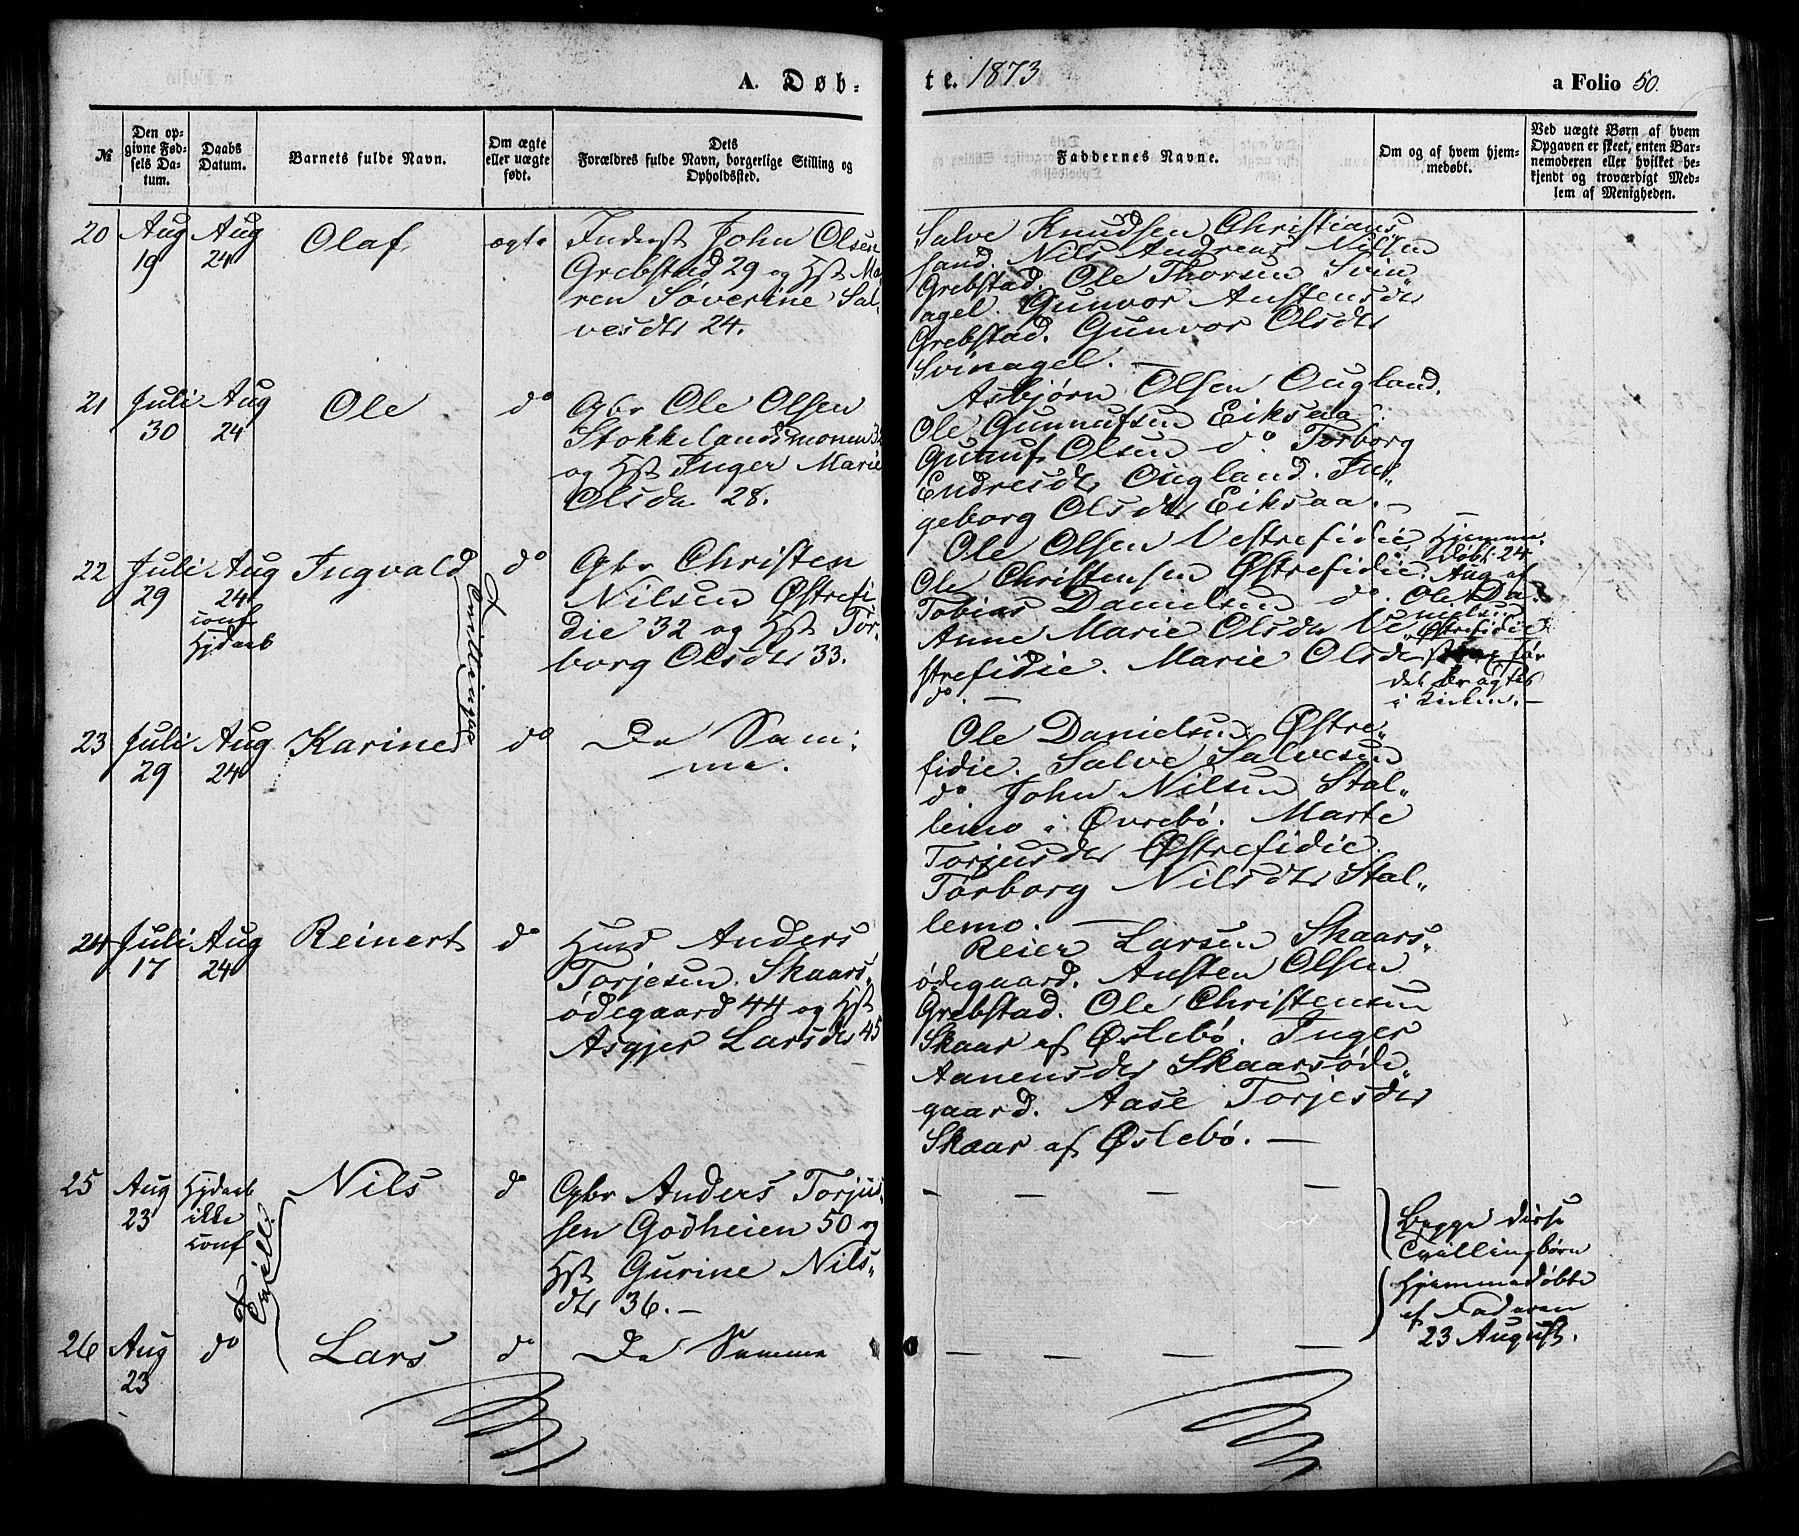 A. Døb-
te. 1873
a Folio 50.
№
Den op-
givne Fød-
sels Da-
tum.
Daabs
Datum.
Barnets fulde Navn.
Om ægte
eller uægte
født.
Dets
Forældres fulde Navn, borgerlige Stilling og
Opholdssted.
Faddernes Navne.
Om og af hvem hjem-
medøbt.
Ved uægte Børn af hvem
Opgaven er skeet, enten Bar-
nemoderen eller hvilket be-
kjendt og troværdigt Med-
lem af Menigheden.
20
Aug
19
Aug
24
Olaf
ægte
Inderst John Olsen
Grebstad 29 og Hst Ma
ren Søverine Sal-
vesdtr 24.
Salve Knudsen Christians
sand. Nils Andreas Nilsen
Grebstad. Ole Thorsen Svin
agel. Gunvor Austensdtr
Grebstad. Gunvor Olsdtr
Svinagel. —
21
Juli
30
Aug
24
Ole
do
Gbr Ole Olsen
Stokkelandsmonen
og Hst Inger Marie
Olsdtr 28.
Asbjørn Olsen Ougland.
Ole Gunnufsen Eiksaa
Gunuf Olsen do. Torborg
Endresdtr Ougland. In-
geborg Olsdtr Eiksaa. —
22
Juli
29
Aug
24
conf
Hjdaab
Ingvald
Tvillinger
do
Gbr Christen
Nilsen Østrefi
die 32 og Hst Tor-
borg Olsdtr 33.
Ole Olsen Vestrefidie
Ole Christensen Østrefidie.
Tobias Danielsen do.
Anne Marie Olsdtr Ve
strefidie. Marie Olsdtr
do. —
Hjemme-
døbt 24
Aug af
Ole Da-
nielsen
Østrefidie
før
det bragtes
i Kirken. —
23
Juli
29
Aug
24
Karine
do
De Sam-
me.
Ole Danielsen Østre-
fidie. Salve Salvesen
do. John Nilsen Stal-
lemo i Øvrebø. Marte
Torjusdtr Østrefidie.
Torborg Nilsdtr Stal-
lemo. —
24
Juli
17
Aug
24
Reinert
do
Husmd Anders
Torjesen Skaars-
ødegaard 44 og Hst
Asgjer Larsdtr 45
Reier Larsen Skaars-
ødegaard. Austen Olsen
Grebstad. Ole Christensen
Skaar af Øslebø. Inger
Aanensdtr Skaarsøde-
gaard. Aase Torjesdtr
Skaar af Øslebø. —
25
Aug
23
Hjdaab
ikke
conf
Tvill.
Nils
do
Gbr Anders Torjus-
sen Godheien 50 og
Hst Gurine Nils-
dtr 36. —
— — — —
Begge disse
Tvillingbørn
Hjemmedøbte
af Faderen
23 August.
26
Aug
23
do
Lars
do
De Samme
— — — —